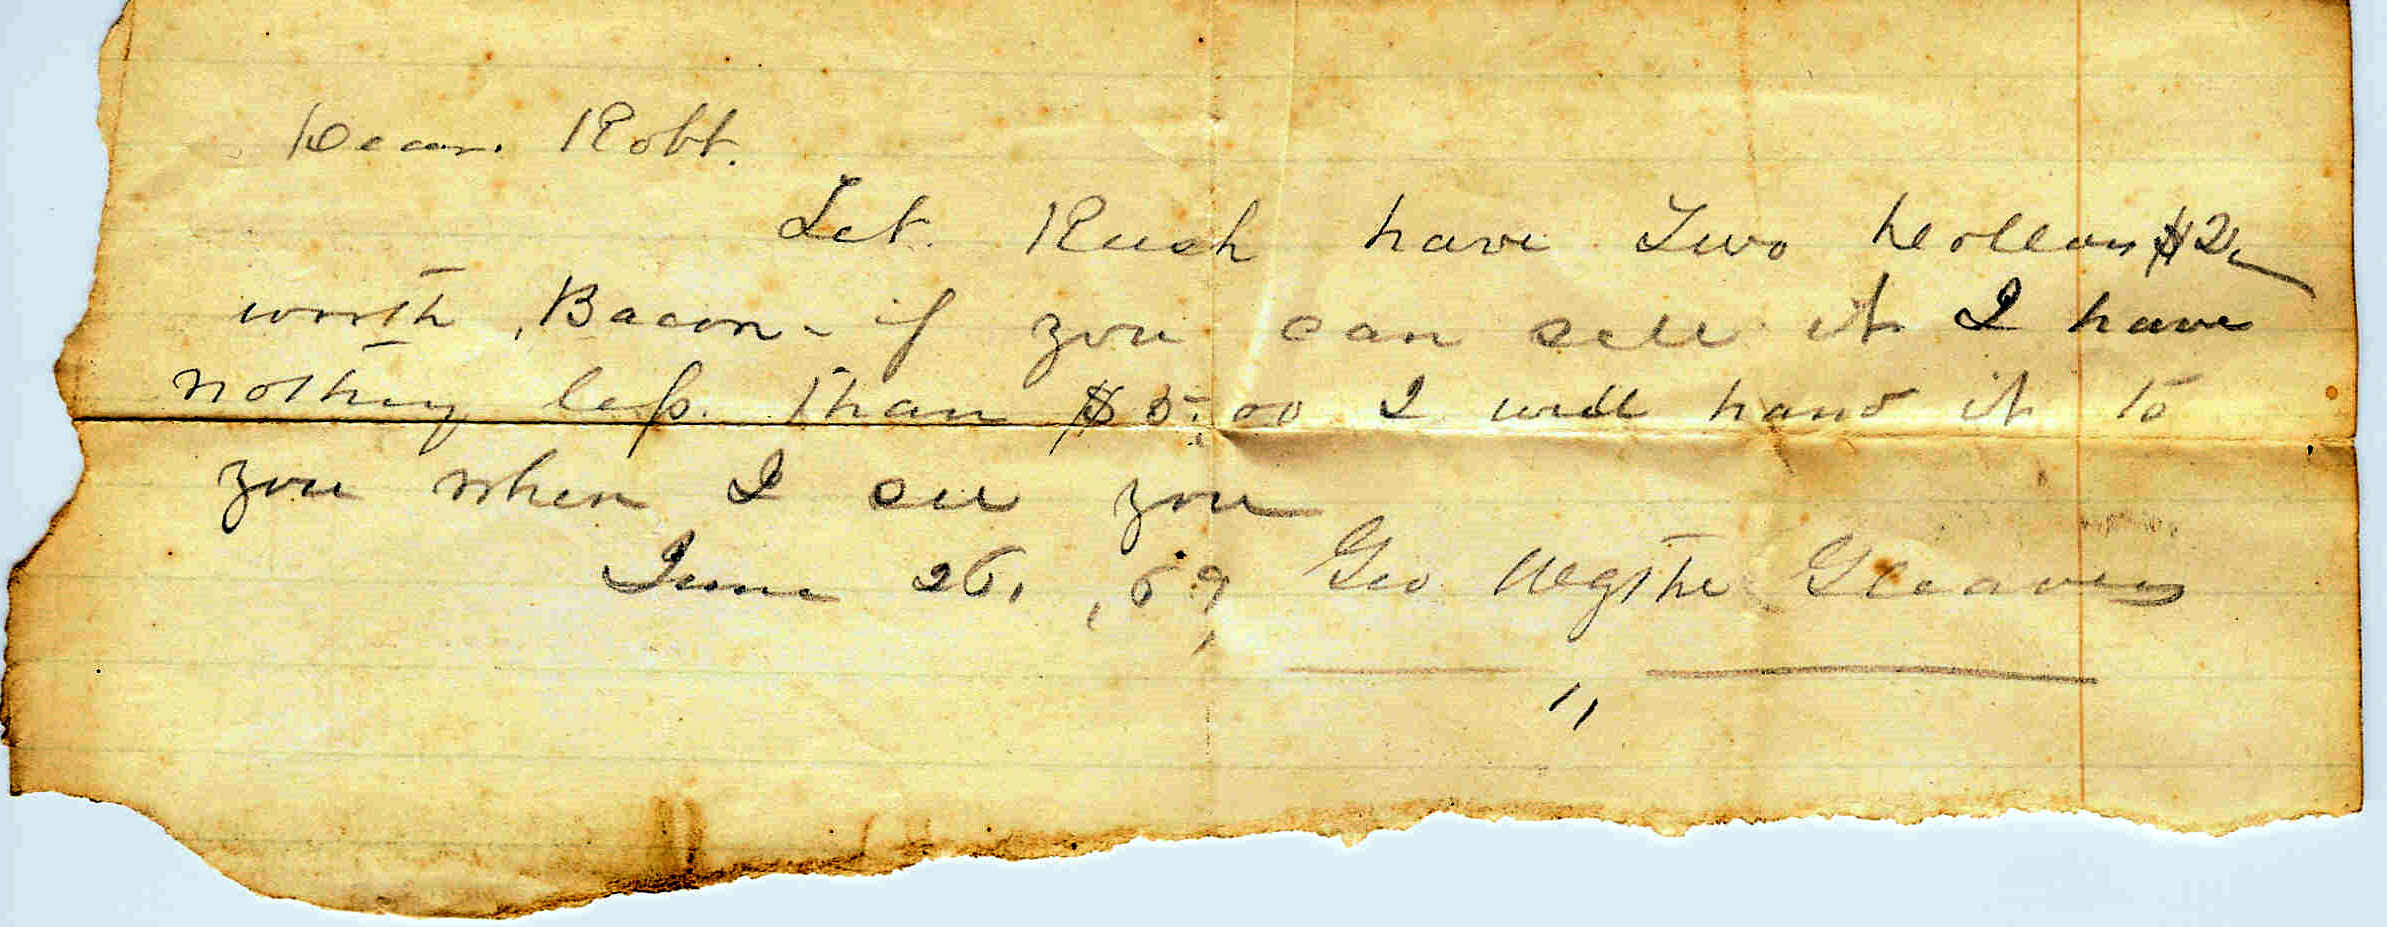 Dear. Robt.
Let. Rush have Two Dollars $2
worth, Bacon - if you can sell it I have
nothing less. than $5.00 I will hand it to
you when I see you
June 26, ,69, Geo Wythe Gleaves
"